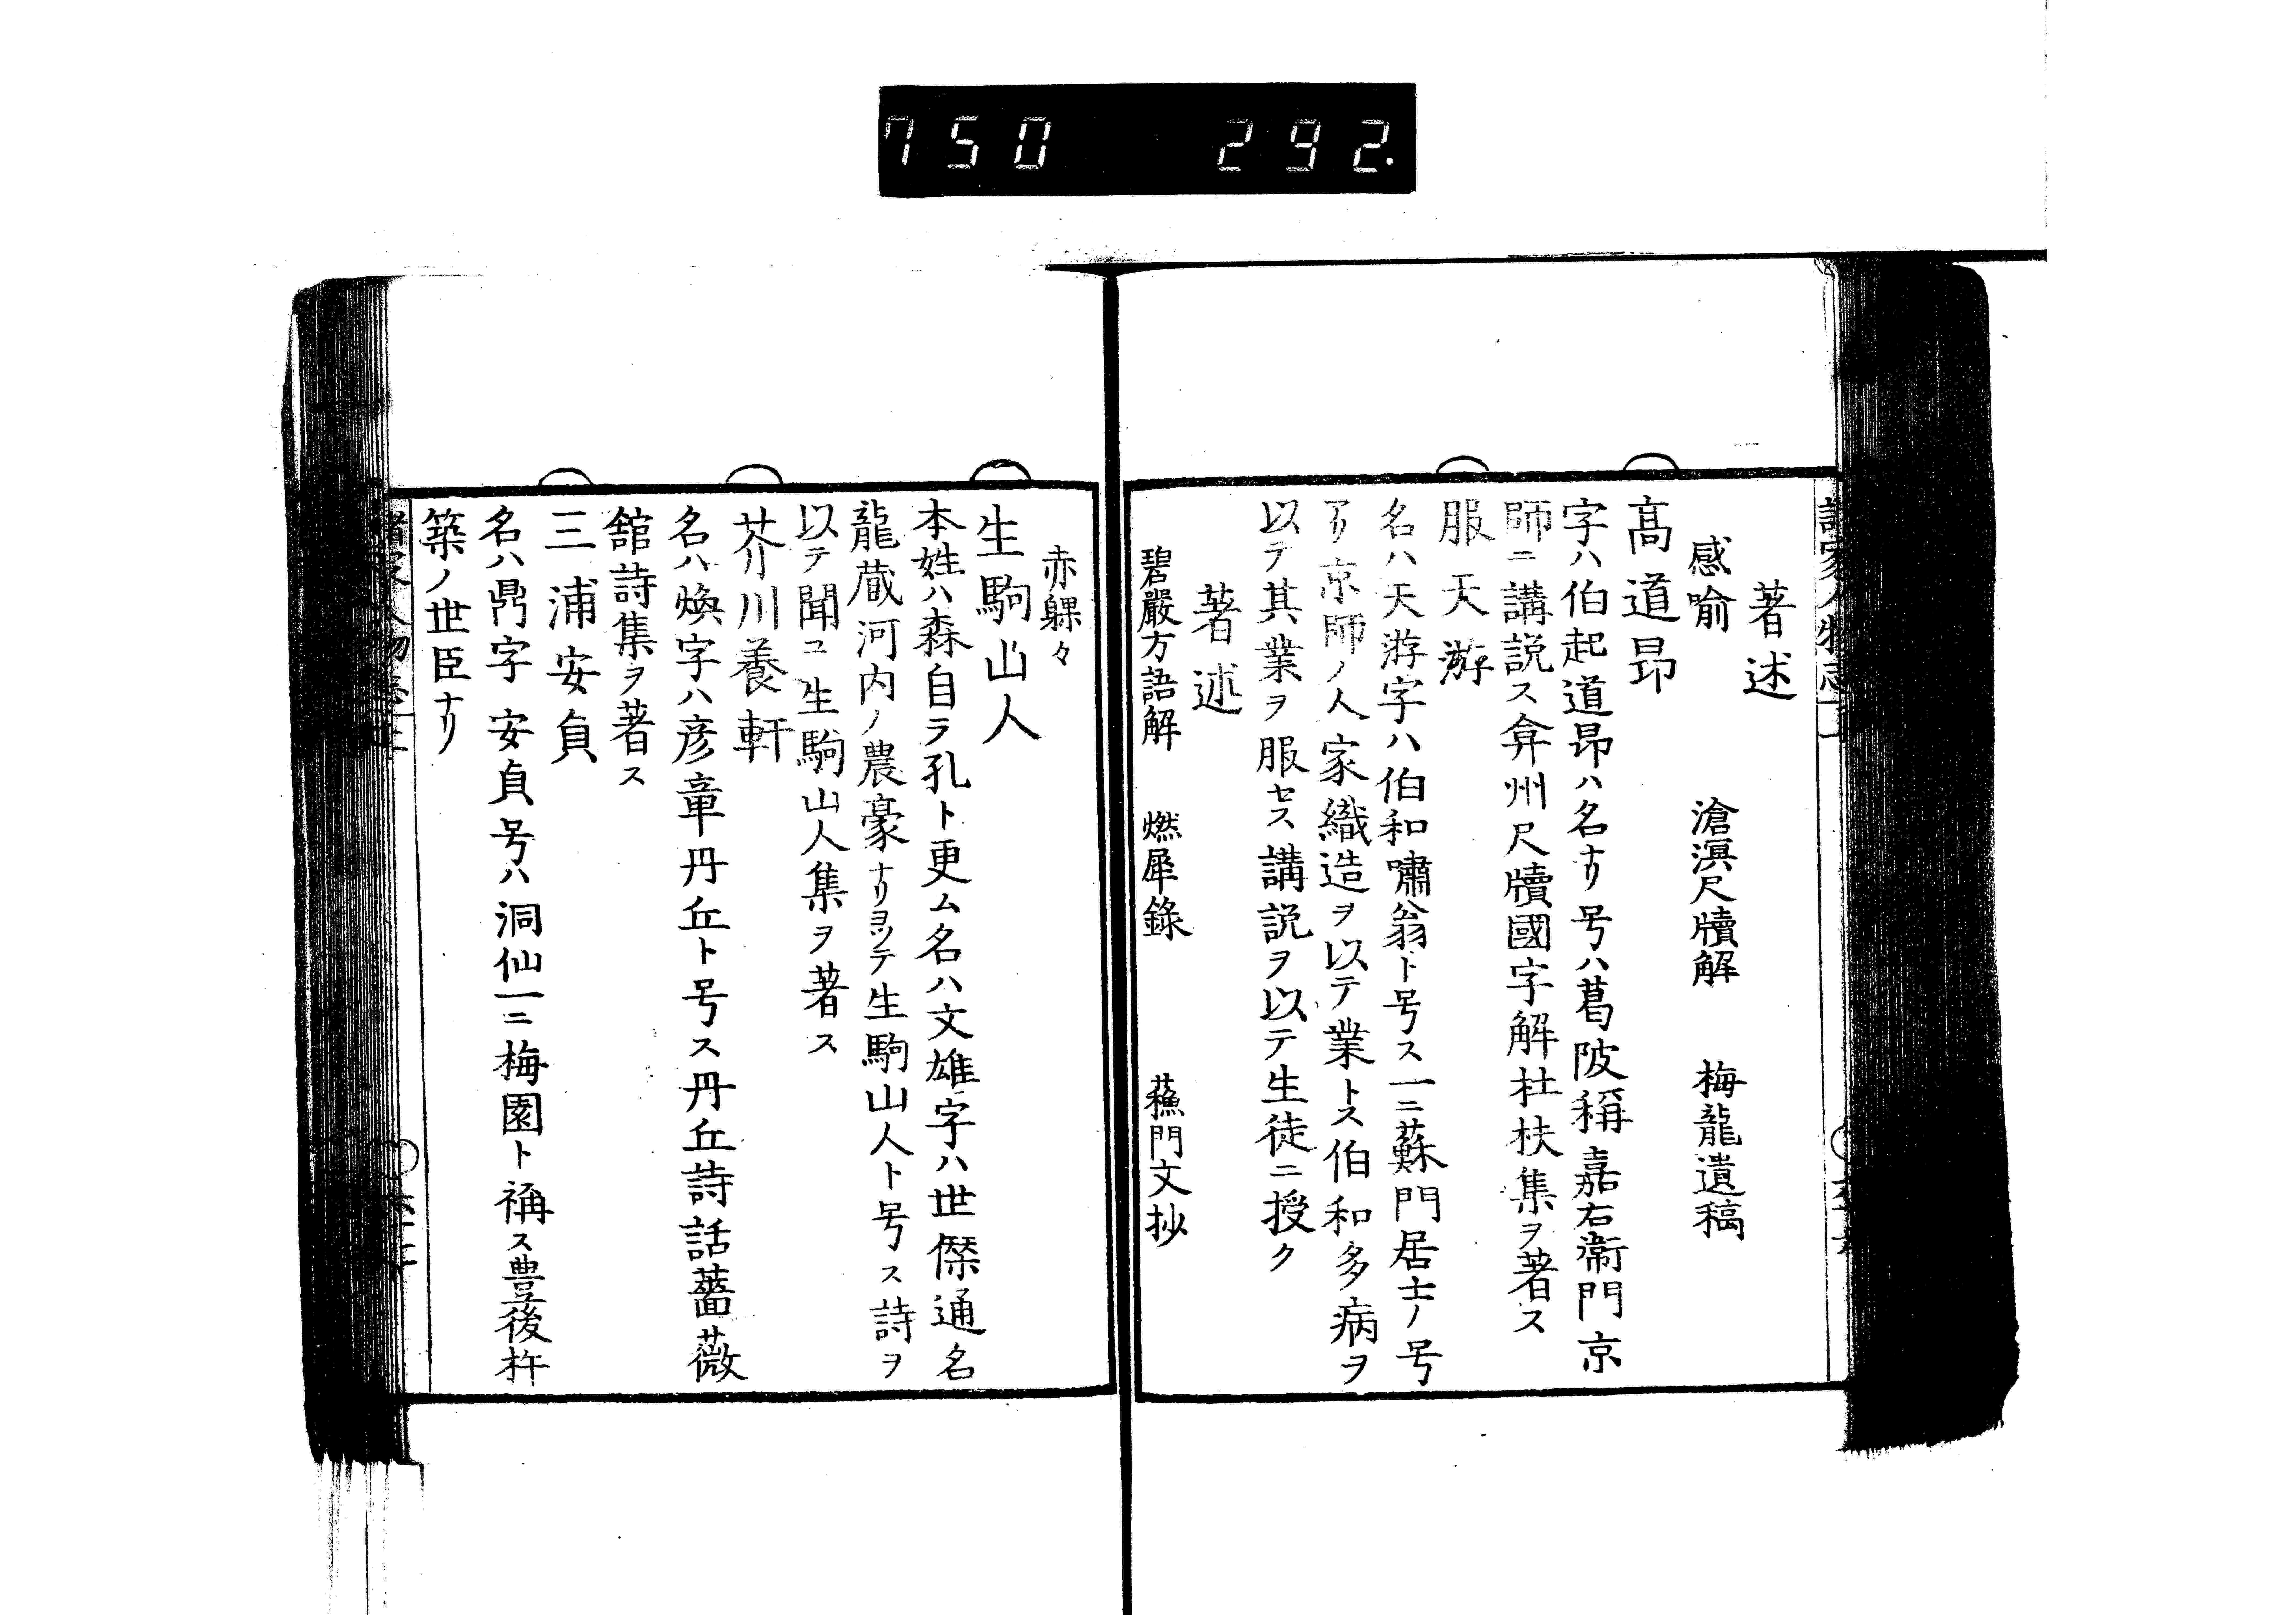 750 292.
著述
感喻 滄溟尺牘解 梅龍遺稿
髙道昂
字ハ伯起道昂ハ名ナリ号ハ葛陂稱嘉右衛門京
師ニ講説ス弇州尺牘國字解杜扶集ヲ著ス
服天游
名ハ天游字ハ伯和嘯翁ト号ス一ニ蘇門居士ノ号
アリ京師ノ人家織造ヲ以テ業トス伯和多病ヲ
以テ其業ヲ服セス講説ヲ以テ生徒ニ授ク
著述
碧嚴方語解 燃犀錄 蘓門文抄
赤髁々
生駒山人
本姓ハ森自ラ孔ト更ム名ハ文雄字ハ世傑通名
龍蔵河内ノ農豪ナリヨツテ生駒山人ト号ス詩ヲ
以テ聞ユ生駒山人集ヲ著ス
芥川養軒
名ハ煥字ハ彦章丹丘ト号ス丹丘詩話薔薇
舘詩集ヲ著ス
三浦安貞
名ハ鼎字安貞号ハ洞仙一ニ梅園ト稱ス豊後杵
築ノ世臣ナリ